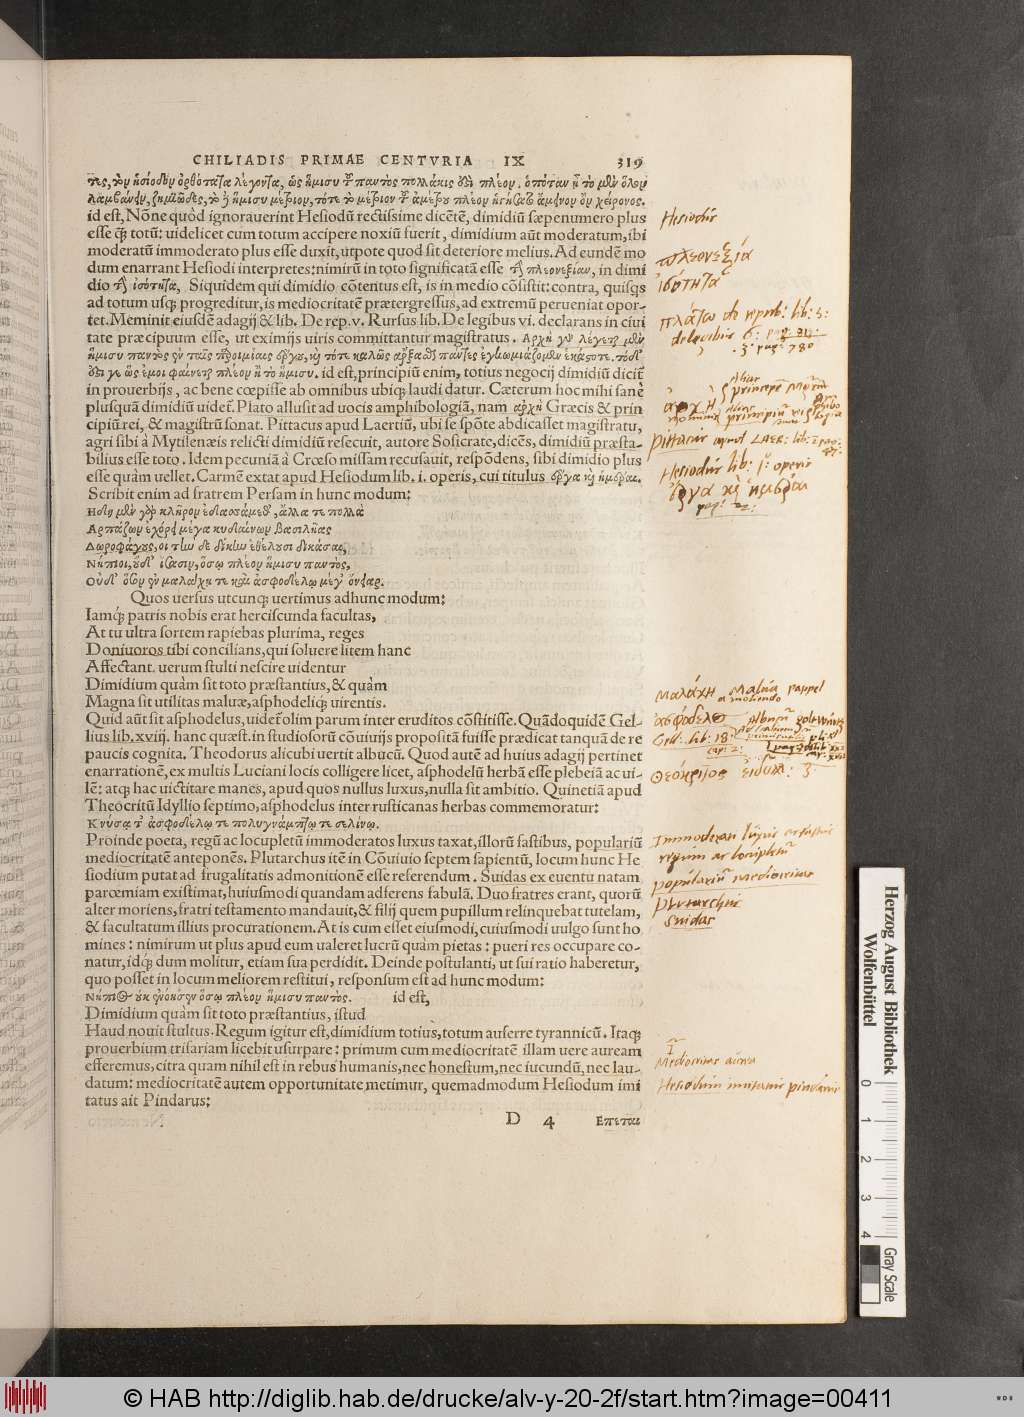 CHILIADIS PRIMAE CENTVRIA IX 319
id est, Nõne quòd ignorauerint Hesiodũ rectissime dicẽtẽ, dimidiũ sæpenumero plus
esse q̃ totũ: uidelicet cum totum accipere noxiũ fuerit, dimidium aũt moderatum, ibi
moderatũ immoderato plus esse duxit, utpote quod sit deteriore melius. Ad eundẽ mo
dum enarrant Hesiodi interpretes: nimirũ in toto significatã esse τὴν πλεονεξίαν, in dimi
dio τὴν ἰσότητα, Siquidem qui dimidio cõtentus est, is in medio cõsistit: contra, quisqs
ad totum usq; progreditur, is mediocritatẽ prætergressus, ad extremũ perueniat opor-
tet. Meminit eiusdẽ adagij & lib. De rep. v. Rursus lib. De legibus vi. declarans in ciui
tate præcipuum esse, ut eximijs uiris committantur magistratus. Αρχὴ γὰρ λέγεται μὲν
ἥμισυ παντὸς ἐν ταῖς παροιμίαις ἔργου, καὶ τότε καλῶς ἄρξασθαι πάντες ἐγκωμιάζομεν ἑκάστοτε. τόδ'
ἐστί γε ὡς ἐμοὶ φαίνεται πλέον ἢ τὸ ἥμισυ. id est, principiũ enim, totius negocij dimidiũ dicit̃
in prouerbijs, ac bene cœpisse ab omnibus ubiq; laudi datur. Cæterum hoc mihi sanè
plusquã dimidiũ uidet̃. Plato allusit ad uocis amphibologiã, nam ἀρχὴ Græcis & prin
cipiũ rei, & magistrũ sonat. Pittacus apud Laertiũ, ubi se spõte abdicasset magistratu,
agri sibi à Mytilenæis relicti dimidiũ resecuit, autore Sosicrate, dicẽs, dimidiũ præsta-
bilius esse toto. Idem pecuniã à Crœso missam recusauit, respõdens, sibi dimidio plus
esse quàm uellet. Carmẽ extat apud Hesiodum lib. i. operis, cui titulus ἔργα καὶ ἡμέραι.
Scribit enim ad fratrem Persam in hunc modum:
Ηδη μὲν γὰρ κλῆρον ἐδασσάμεθ', ἄλλα τε πολλὰ
Αρπάζων ἐφόρεις μέγα κυδαίνων βασιλῆας
Δωροφάγους, οἳ τήνδε δίκην ἐθέλουσι δικάσαι,
Νήπιοι, οὐδ' ἴσασιν, ὅσῳ πλέον ἥμισυ παντὸς,
Οὐδ' ὅσον ἐν μαλάχῃ τε καὶ ἀσφοδέλῳ μέγ' ὄνειαρ.
Quos uersus utcunq; uertimus adhunc modum:
Iamq; patris nobis erat herciscunda facultas,
At tu ultra sortem rapiebas plurima, reges
Doniuoros tibi concilians, qui soluere litem hanc
Affectant. uerum stulti nescire uidentur
Dimidium quàm sit toto præstantius, & quàm
Magna sit utilitas maluæ, asphodeliq; uirentis.
Quid aũt sit asphodelus, uidet̃ olim parum inter eruditos cõstitisse. Quãdoquidẽ Gel-
lius lib. xviij. hanc quæst. in studiosorũ cõuiuijs propositã fuisse prædicat tanquã de re
paucis cognita. Theodorus alicubi uertit albucũ. Quod autẽ ad huius adagij pertinet
enarrationẽ, ex multis Luciani locis colligere licet, asphodelũ herbã esse plebeiã ac ui-
lẽ: atq; hac uictitare manes, apud quos nullus luxus, nulla sit ambitio. Quinetiã apud
Theocritũ Idyllio septimo, asphodelus inter rusticanas herbas commemoratur:
Κνύσᾳ τ' ἀσφοδέλῳ τε πολυγνάμπτῳ τε σελίνῳ.
Proinde poeta, regũ ac locupletũ immoderatos luxus taxat, illorũ fastibus, populariũ
mediocritatẽ anteponẽs. Plutarchus itẽ in Cõuiuio septem sapientũ, locum hunc He
siodium putat ad frugalitatis admonitionẽ esse referendum. Suidas ex euentu natam
parœmiam existimat, huiusmodi quandam adferens fabulã. Duo fratres erant, quorũ
alter moriens, fratri testamento mandauit, & filij quem pupillum relinquebat tutelam,
& facultatum illius procurationem. At is cum esset eiusmodi, cuiusmodi uulgo sunt ho
mines: nimirum ut plus apud eum ualeret lucrũ quàm pietas: pueri res occupare co-
natur, idq; dum molitur, etiam sua perdidit. Deinde postulanti, ut sui ratio haberetur,
quo posset in locum meliorem restitui, responsum est ad hunc modum:
Νήπιος οὐκ ἐνόησεν ὅσῳ πλέον ἥμισυ παντός. id est,
Dimidium quàm sit toto præstantius, istud
Haud nouit stultus. Regum igitur est, dimidium totius, totum auferre tyrannicũ. Itaq;
prouerbium trifariam licebit usurpare: primum cum mediocritatẽ illam uere auream
efferemus, citra quam nihil est in rebus humanis, nec honestum, nec iucundũ, nec lau-
datum: mediocritatẽ autem opportunitate metimur, quemadmodum Hesiodum imi
tatus ait Pindarus:
D 4 Επεται
Hesiodus
πλεονεξία
ἰσότητα
Pittacus apud LAER: lib:
Hesiodus lib: 1: operis
ἔργα καὶ ἡμέραι
μαλάχη Malua pappel
ἀσφόδελος
Gell: lib: 18:
Immoderati luxus
regum ac locupletũ
populariũ mediocritas
Plutarchus
Suidas
Mediocritas aurea
Hesiodum imitatus pindarus
Herzog August Bibliothek
Wolfenbüttel
0 1 2 3 4
Gray Scale
© HAB http://diglib.hab.de/drucke/alv-y-20-2f/start.htm?image=00411